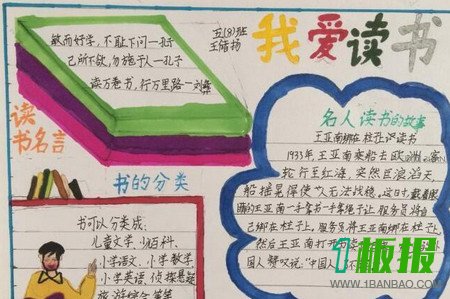 敏而好学,不耻下问一孔子
己所不欲,勿施于人一孔子
读万卷书,行万里路一刘彝
五(8)班
王皓扬
我爱读书
读书名言
名人读书的故事
王亚南绑在柱子上读书
1933年王亚南乘船去欧洲。客
轮行至红海,突然巨浪滔天,
船摇晃得使人无法站稳。这时,戴着眼
镜的王亚南一手拿书一手拿绳子让服务员将自
己绑在柱子上,服务员将王亚南绑在柱子上
然后王亚南打开
国人赞叹说:"中国人
书的分类
书可以分类成:
儿童文学、少儿百科、
小学语文、小学数学
小学英语、侦探悬疑
板报
WWW.1BANBAO.COM